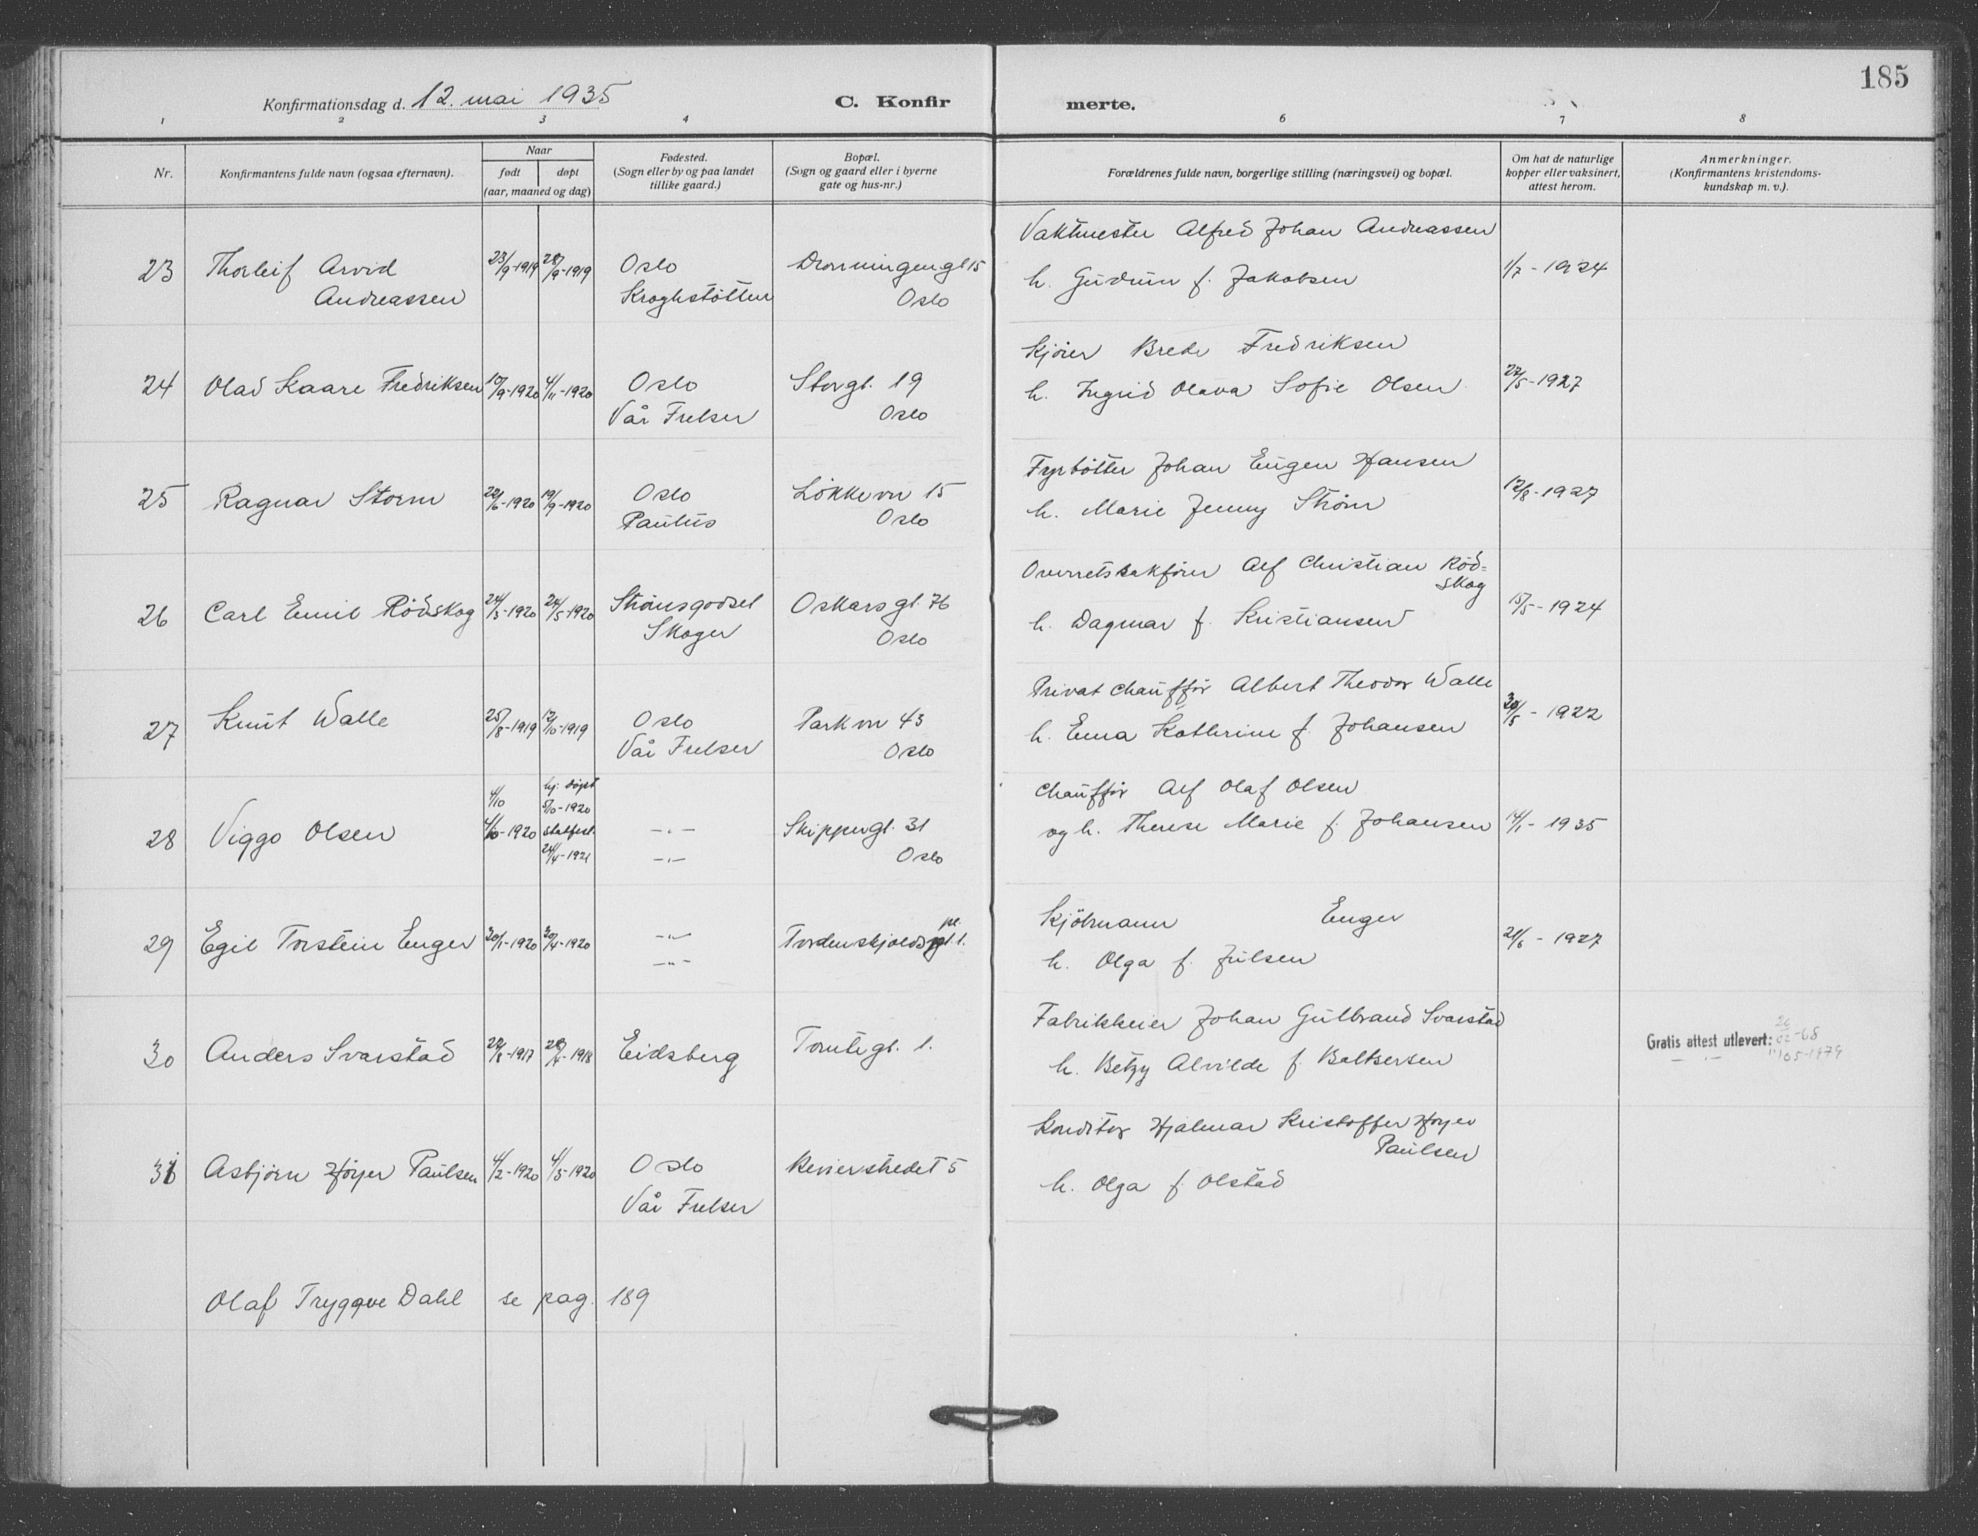 185
Konfirmationsdag d. 12. mai 1935
C. Konfir merte.
1 2 3 4 6 7 8
Nr.
Konfirmantens fulde navn (ogsaa efternavn).
Naar
født
døpt
(aar, maaned og dag)
Fødested.
(Sogn eller by og paa landet
tillike gaard.)
Bopæl.
(Sogn og gaard eller i byerne
gate og hus-nr.)
Forældrenes fulde navn, borgerlige stilling (næringsvei) og bopæl.
Om hat de naturlige
kopper eller vaksinert,
attest herom.
Anmerkninger.
(Konfirmantens kristendoms-
kundskap m. v.).
Vaktmester Alfred Johan Andreassen
23 Thorleif Arvid 23/9-1919 28/9-1919 Oslo Dronningengt 15 h. Gudrun f. Jakobsen 1/7 - 1924
Andreassen Kroghstøtten Oslo
Kjører Brede Fredriksen
24 Olad Kaare Fredriksen 10/9-1920 4/11-1920 Oslo Storgt. 19 h. Ingrid Olava Sofie Olsen 22/5-1927
Vår Frelser Oslo
Fyrbøtter Johan Eugen Hansen
25 Ragnar Storm 22/6-1920 19/9-1920 Oslo Løkkevn 15 h. Marie Jenny Strøm 12/8-1927
Paulus Oslo
Overretssakfører Alf Christian Rød=
skog
26 Carl Emil Rødskog 24/3-1920 24/5-1920 Strømsgodset Oskarsgt. 76 h. Dagmar f. Kristiansen 15/5-1924
Skoger Oslo
Privat chauffør Albert Theodor Walle
27 Knut Walle 25/8-1919 12/10-1919 Oslo Parkvn 43 h. Emma Kathrine f. Johansen 30/5 - 1922
Vår Frelser Oslo
4/10 hj. døpt Chauffør Alf Olaf Olsen
5/10-1920
28 Viggo Olsen 4/10-1920 statfest. -"- Skippergt. 31 og h. Therese Marie f. Johansen 14/1- 1935
24/4-1921 -"- Oslo
Kjøbmann Enger
29 Egil Torstein Enger 30/1-1920 30/4-1920 -"- Tordenskjolds pl. gt. 1. 21/6 - 1927
-"- h. Olga f. Julsen
Fabrikkeier Johan Gulbrand Svarstad
30 Anders Svarstad 22/8-1917 28/4-1918 Eidsberg Tomtegt. 1. Gratis attest utlevert: 26/02-68
h. Betzy Alvilde f. Baltsersen -"- 11/05-1979
Konditor Hjalmar Kristoffer Høyer
Paulsen
31 Asbjørn Høyer Paulsen 4/2-1920 4/5-1920 Oslo Revierstredet 5 h. Olga f. Olstad
Vår Frelser
Olaf Tryggve Dahl se pag. 189